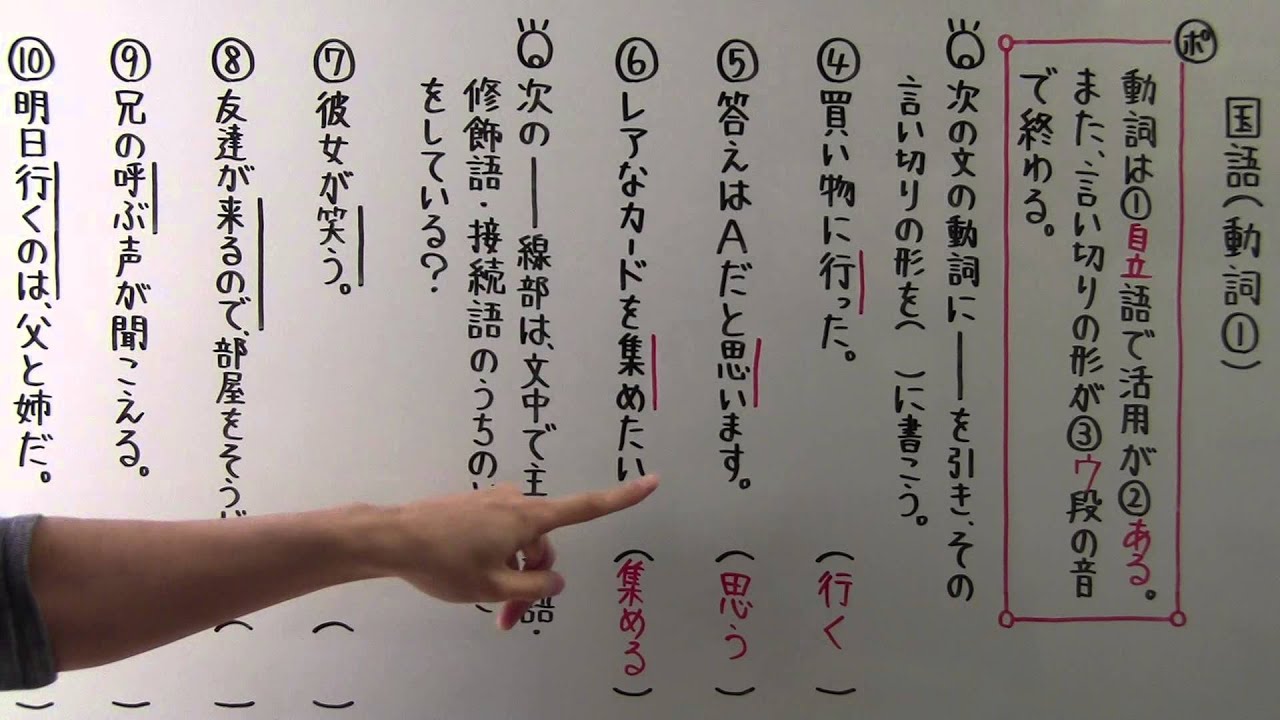 国語(動詞①)
ポ
動詞は①自立語で活用が②ある。
また、言い切りの形が③ウ段の音
で終わる。
次の文の動詞に――を引き、その
言い切りの形を( )に書こう。
④買い物に行った。(行く)
⑤答えはAだと思います。(思う)
⑥レアなカードを集めたい。(集める)
次の――線部は、文中で主語・
修飾語・接続語のうちの
をしている?
⑦彼女が笑う。( )
⑧友達が来るので、部屋をそう( )
⑨兄の呼ぶ声が聞こえる。( )
⑩明日行くのは、父と姉だ。( )